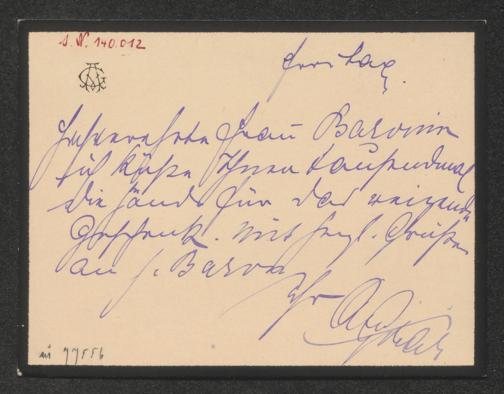 J. N. 140.012
Freitag.
Hochverehrte Frau Baronin
ich küsse Ihnen tausendmal
die Hände für das reizende
Geschenk. Mit herzl. Grüßen
an H. Baron
Ihr
77556